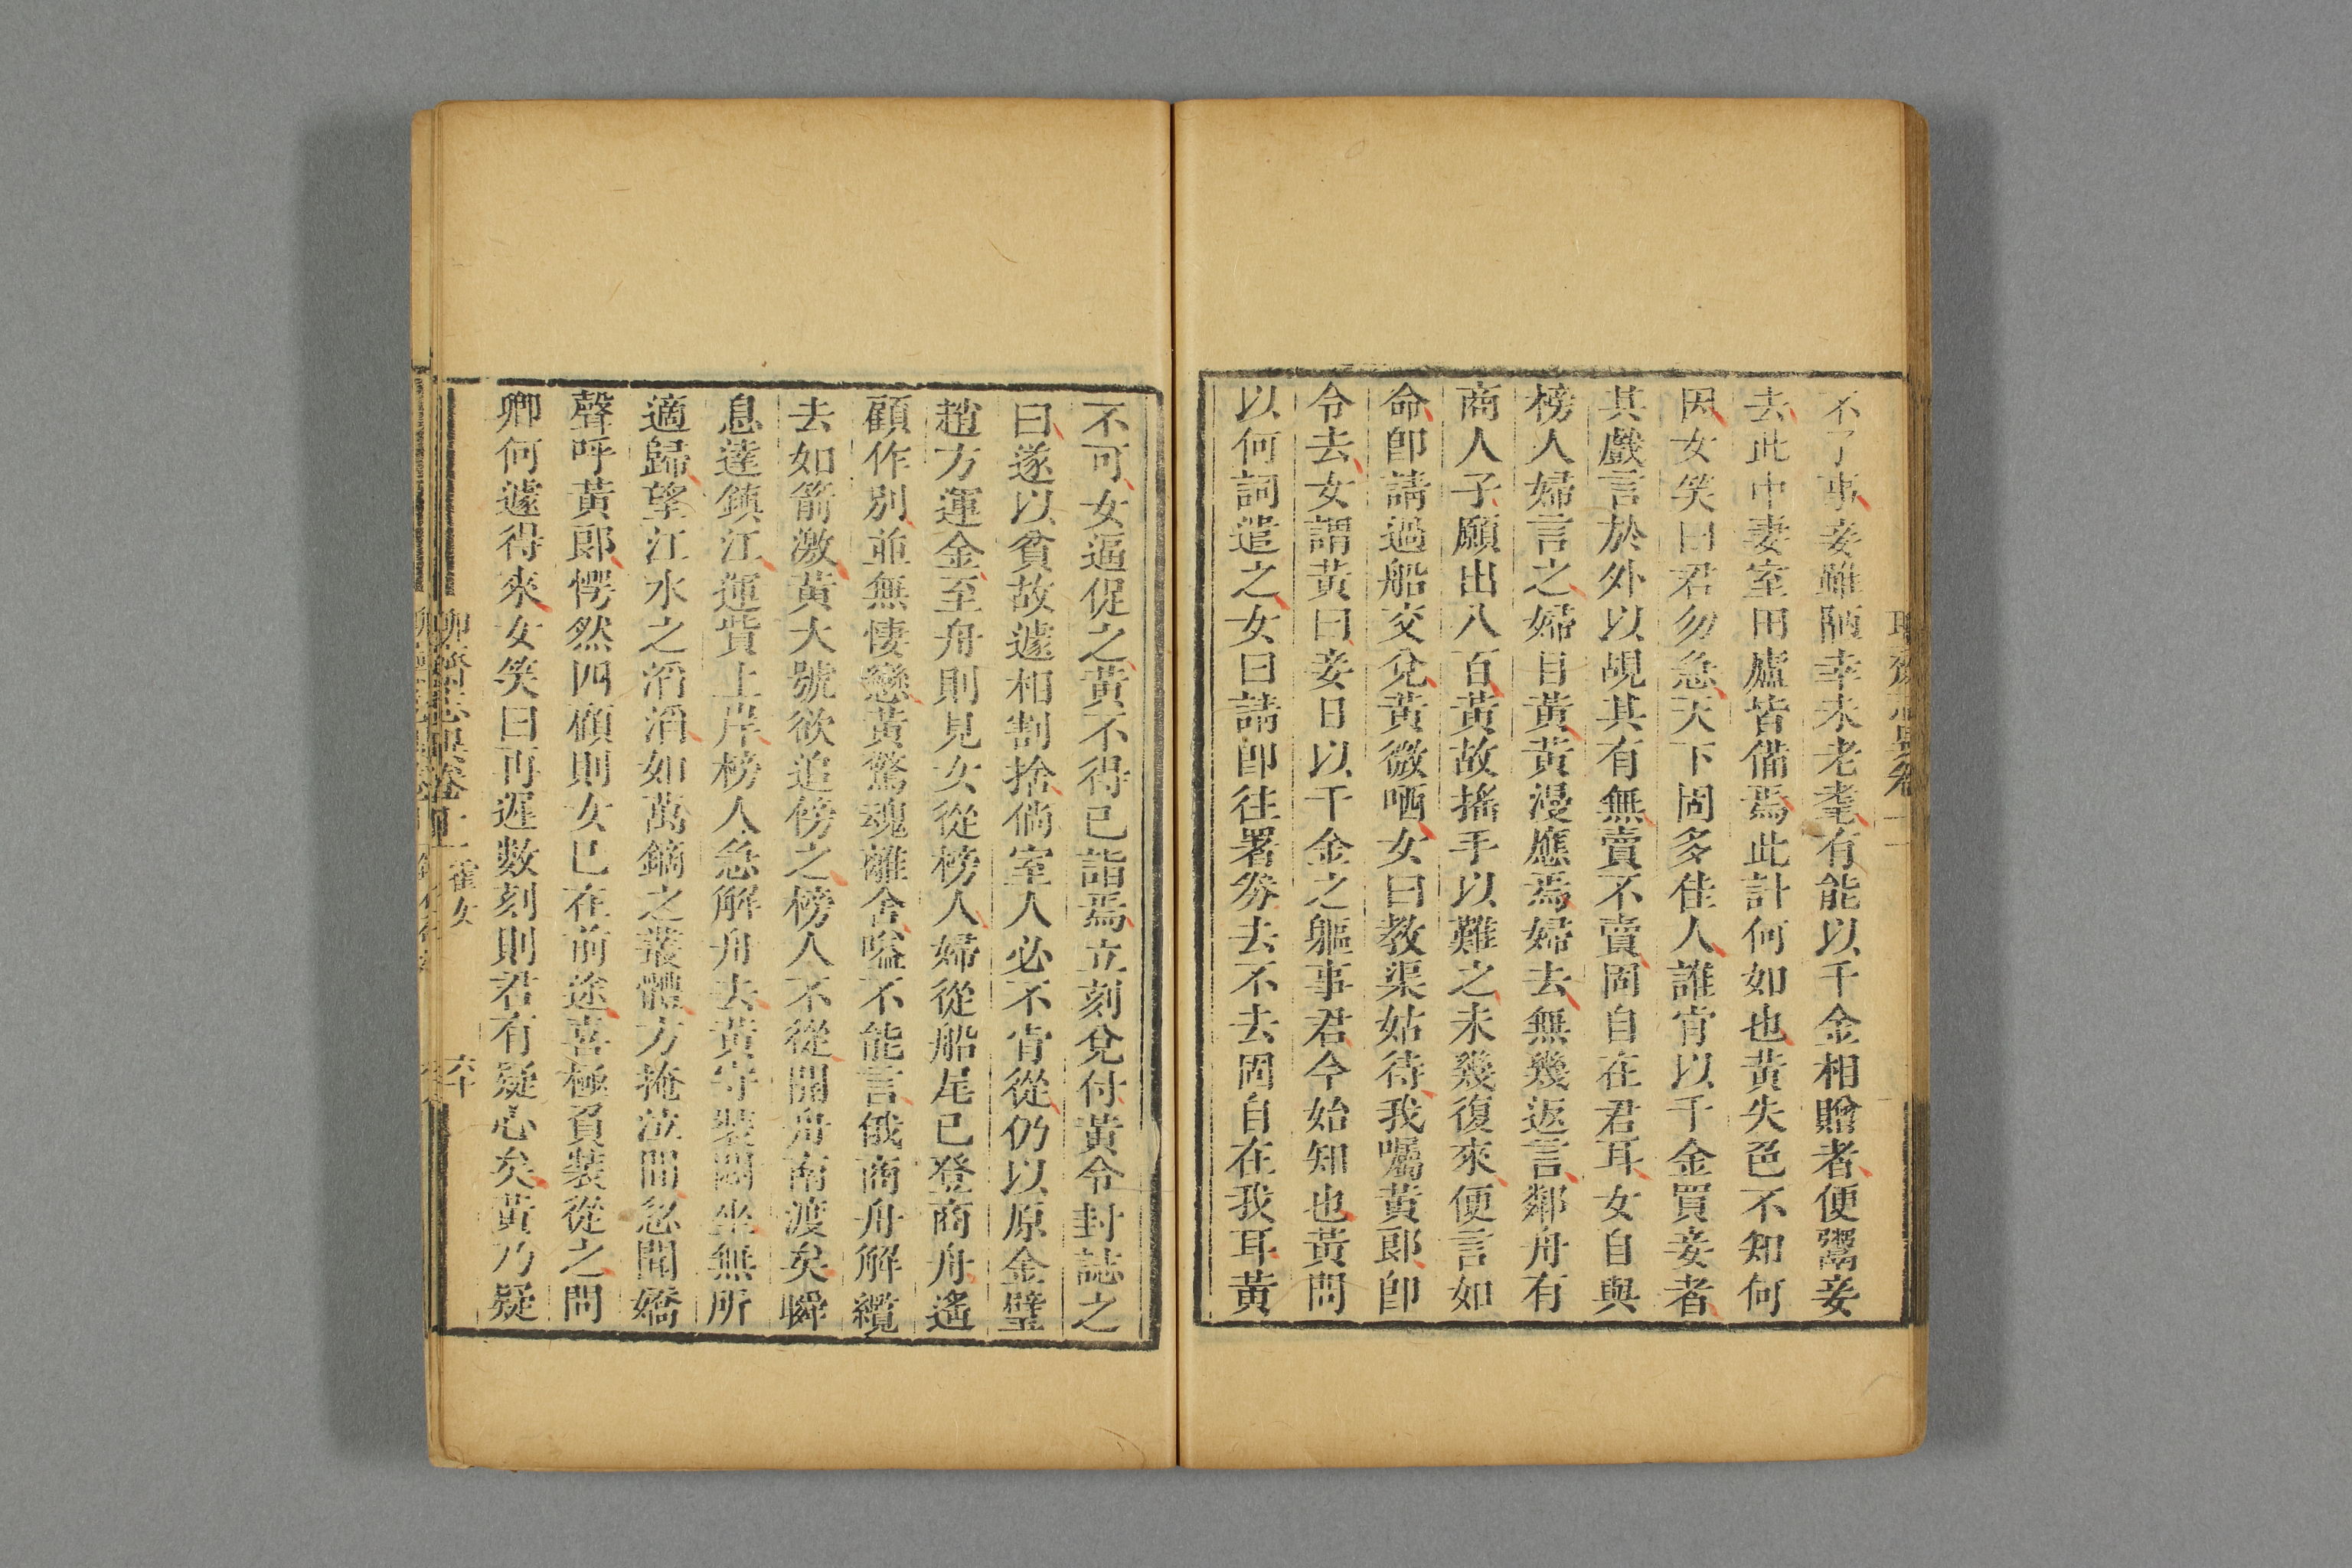 不了事妾雖陋幸未老耄有能以千金相贈者便鬻妾
去此中妻室田廬皆備焉此計何如也黃失色不知何
因女笑曰君勿急天下固多佳人誰肯以千金買妾者
其戲言於外以覘其有無賣不賣固自在君耳女自與
榜人婦言之婦目黃黃漫應焉婦去無幾返言鄰舟有
商人子願出八百黃故搖手以難之未幾復來便言如
命卽請過船交兌黃微哂女曰教渠姑待我囑黃郎卽
令去女謂黃曰妾日以千金之軀事君今始知也黃問
以何詞遣之女曰請卽往署券去不去固自在我耳黃
不可女逼促之黃不得已詣焉立刻兌付黃令封誌之
曰遂以貧故遽相割捨倘室人必不肯從仍以原金璧
趙方運金至舟則見女從榜人婦從船尾已登商舟遙
顧作別並無悽戀黃驚魂離舍嗌不能言俄商舟解纜
去如箭激黃大號欲追傍之榜人不從開舟南渡矣瞬
息達鎮江運貲上岸榜人急解舟去黃守裝悶坐無所
適歸望江水之滔滔如萬鏑之叢體方掩泣間忽聞嬌
聲呼黃郎愕然四顧則女已在前途喜極負裝從之問
卿何遽得來女笑曰再遲數刻則君有疑心矣黃乃疑
霍女
六十